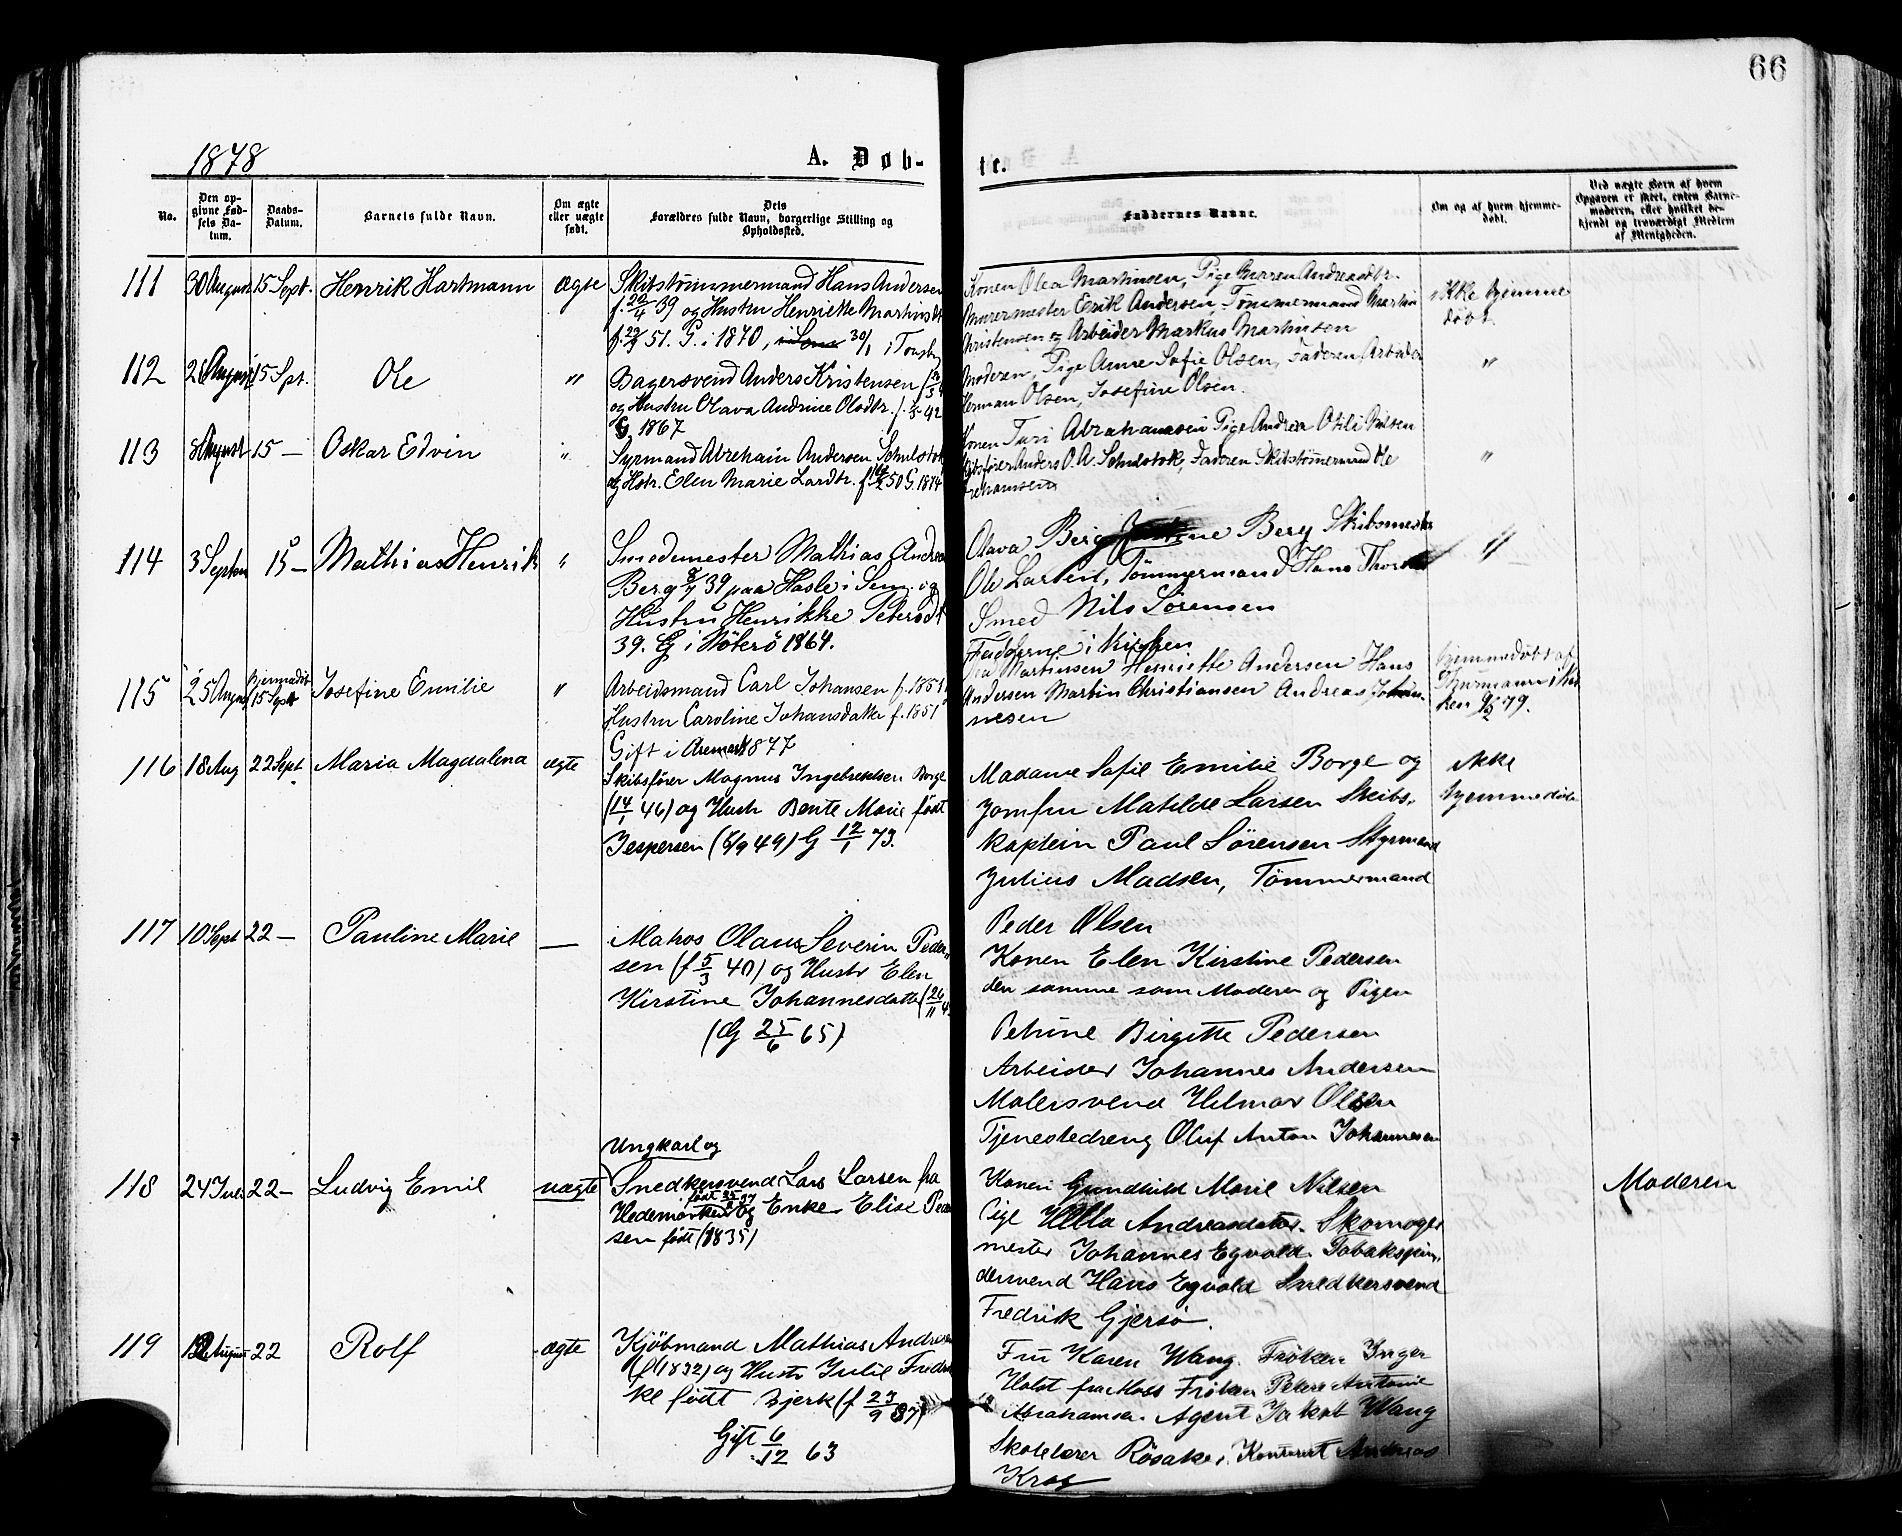 66
1878
A. Døb-
te.
No.
Den op-
givne Fød-
sels Da-
tum.
Daabs-
Datum.
Barnets fulde Navn.
Om ægte
eller uægte
født.
Dets
Forældres fulde Navn, borgerlige Stilling og
Opholdssted.
Faddernes Navne.
Om og af hvem hjemme-
døbt.
Ved uægte Børn af hvem
Opgaven er skeet, enten Barne-
moderen, eller hvilket be-
kjendt og troværdigt Medlem
af Menigheden.
111 30 August 15 Sept. Henrik Hartmann ægte
Skibstømmermand Hans Andersen
f. 39 og Hustru Henriette Martinsdt
f. 51. G. i 1870, 30/1 i Tønsbg
Konen Olea Martinsen, Pige Maren Andreasdtr.
Murermester Erik Andersen, Tømmermand Martin
Christensen og Arbeider Markus Martinsen
ikke hjemme
døbt.
112 August 15 Spt. Ole "
Bagersvend Anders Kristensen
og Hustru Olava Andrine Olsdtr. f. 42
G. 1867
Moderen, Pige Anne Sofie Olsen, Faderen, Arbeider
Herman Olsen, Josefine Olsen.
"
113 8 August 15 — Oskar Edvin "
Styrmand Abraham Andersen Schulstok
og Hstr. Elen Marie Larsdtr. f. 50 G. 1874
Konen Turi Abrahamsen Pige Andrea Otili Nilsen
Skibsfører Anders O. A. Schulstok, Faderen Skibstømmermand Ole
Abrahamsen
"
114 3 Septem 15 — Mathias Henrik "
Smedemester Mathias Andreas
Berg 39 paa Hasle i Sem og
Hustru Henrikke Petersdt
39. G i Nøterø 1864.
Olava Berg Berg Skibsmester
Ole Larsen, Tømmermand Hans
Smed Nils Sørensen
Fadderne i Kirken
"
115 25 Augus Hjemmedøbt
15 Sept Josefine Emilie "
Arbeidsmand Carl Johansen f. 1851
Hustru Caroline Johansdatter f. 1851
Gift i Aremark 1877
Martinsen Henriette Andersen Hans
Andersen Martin Christiansen Andreas Johan-
nesen
hjemmedøbt af
i Kir
ken 79.
116 18 Aug 22 Sept Maria Magdalena ægte
Skibsfører Magnus Ingebretsen Borge
(14/1 46) og Hustr Bente Marie født
Jespersen (6/9 49) G 12/1 73.
Madame Sofie Emilie Borge og
Jomfru Matilde Larsen Skibs-
kaptein Paul Sørensen Styrmand
Julius Madsen, Tømmermand
Peder Olsen
ikke
hjemmedøbt
117 10 Sept 22 — Pauline Marie —
Matros Olaus Severin Peder-
sen (f 5/3 40) og Hustr Elen
Kirstine Johannesdatte (26/11 4
(G 25/6 65)
Konen Elen Kirstine Pedersen
den samme som Moderen og Pigen
Petrine Birgitte Pedersen
Arbeider Johannes Andersen
Malersvend Hilmar Olsen
Tjenestedreng Oluf Anton Johannesen
118 24 Juli 22 — Ludvig Emil uægte
Ungkarl og
Snedkersvend Lars Larsen fra
Hedemarken og Enke Elise Peder
sen født (1835)
Konen Gundhild Marie Nilsen
Pige Hella Andreasdater. Skomager
mester Johannes Egvold. Tobakspin-
dersvend Hans Egvold Snedkersvend
Fredrik Gjersø.
Moderen
119 August 22 Rolf ægte
Kjøbmand Mathias Andresen
(f 1832) og Hustr Julie Fredrik
ke født Bjerk (f 23/9 37)
Gift 6/12 63
Fru Karen Wang. Frøken Inger
Holst fra Moss Frøken Petere Antonie
Abrahamsen. Agent Jakob Wang
Skolelærer Røsaker, Kontorist Andreas
Krog